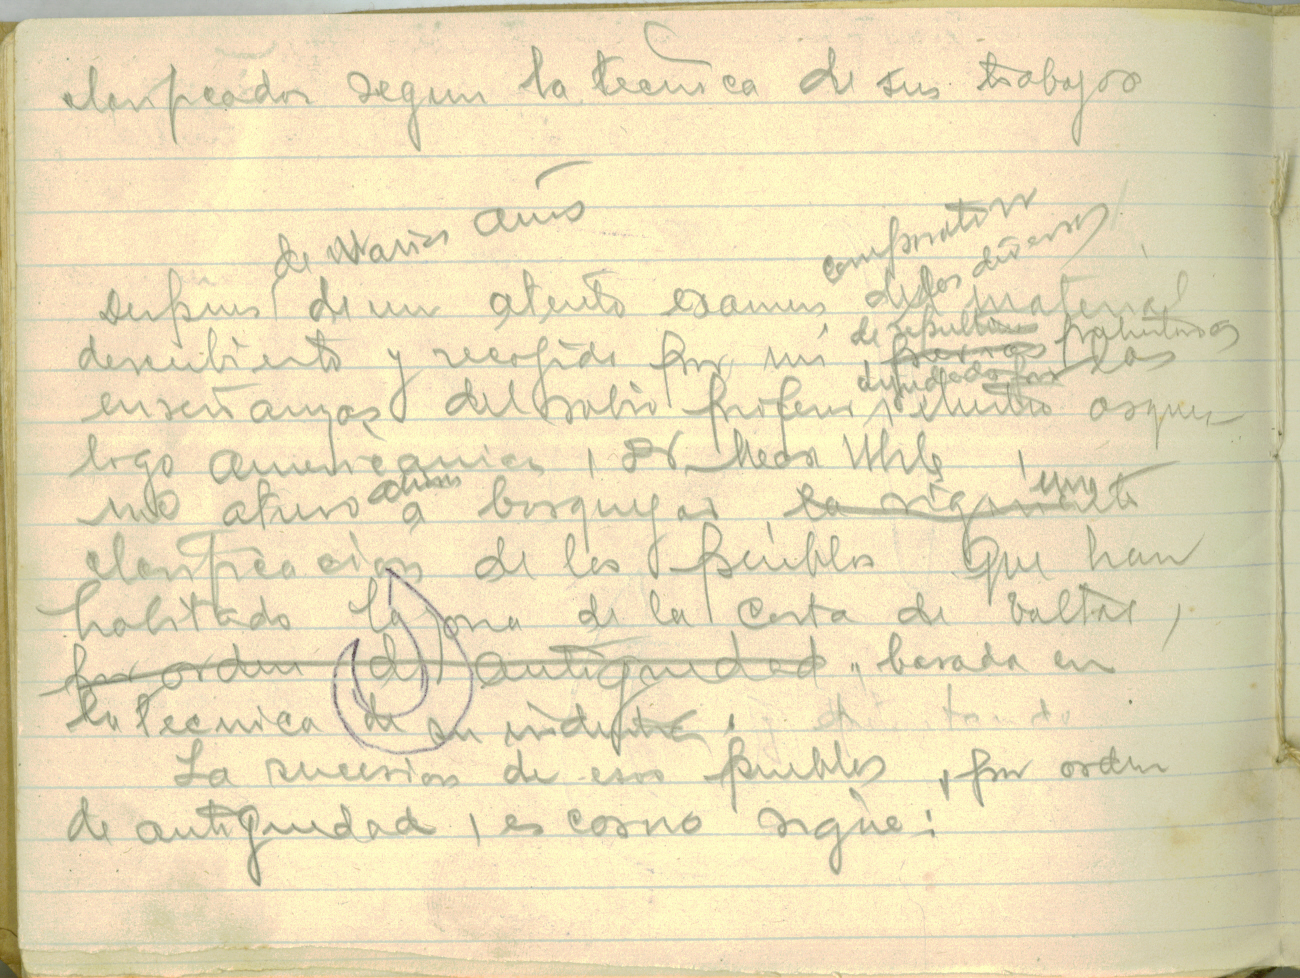 clasificados segun la técnica de sus trabajos
de varios años
comparativo
Despues de un atento examen de los diversos material
descubierto y recogido por mi, de sepulturas prehistoricas
ayudado por las
enseñanzas del sabio profesor, ilustre arqueo-
logo americanista, Dr. Max Uhle,
me atrevo a bosquejar la siguiente una
clasificacion de los pueblos que han
habitado la zona de la costa de Taltal,
por orden de antiguedad, basada en
la tecnica de su industria.
La sucesion de esos pueblos, por orden
de antiguedad, es como sigue: